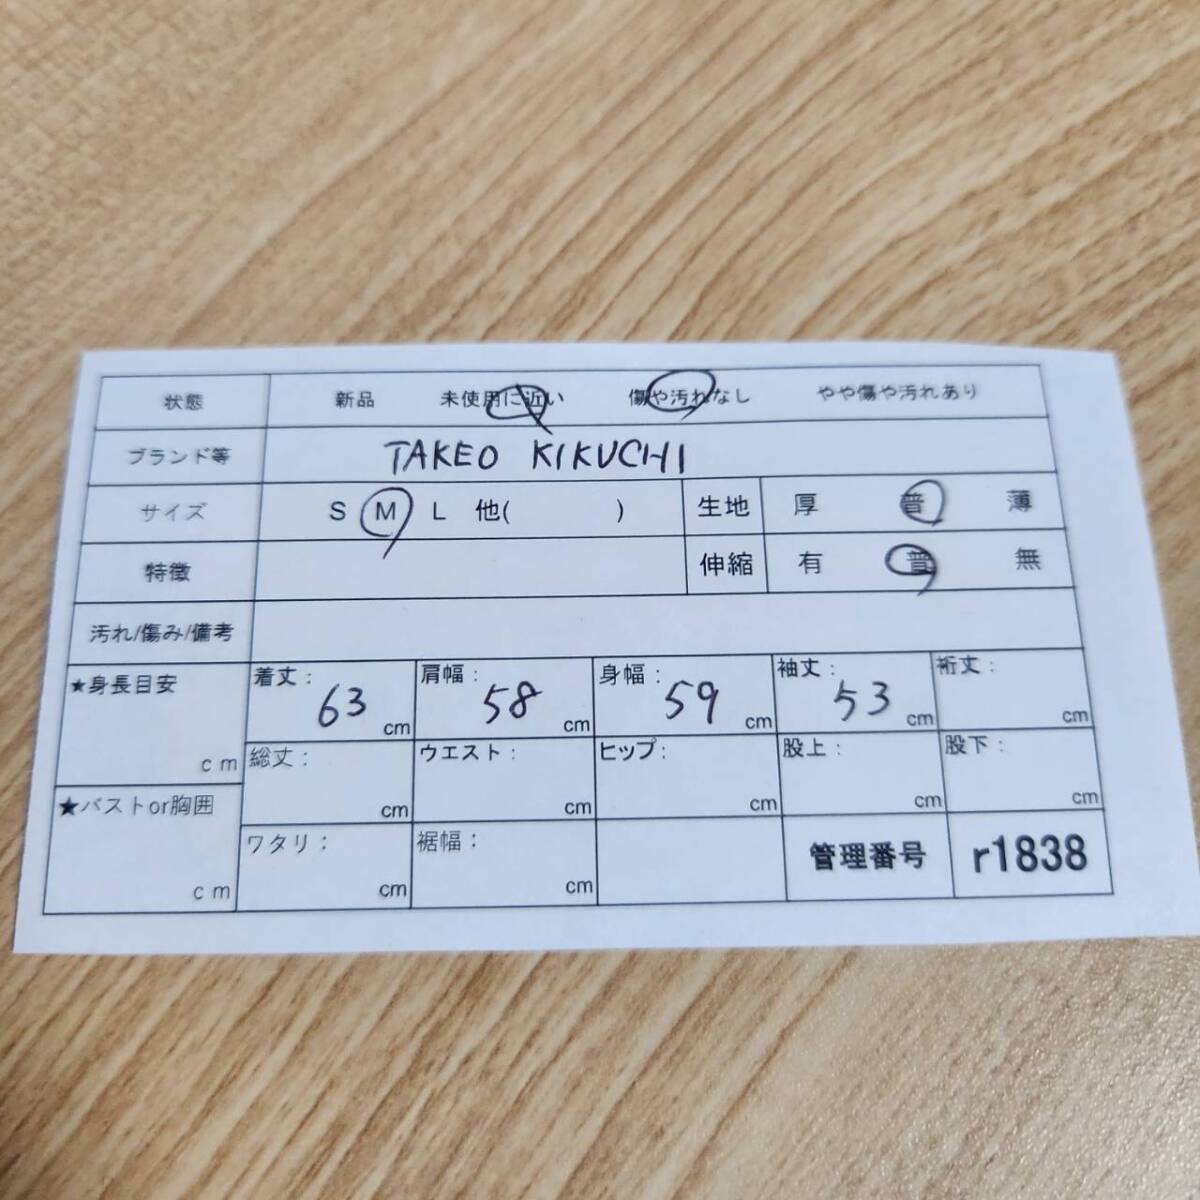 状態 新品 未使用に近い 傷や汚れなし やや傷や汚れあり
ブランド等 TAKEO KIKUCHI
サイズ S M L 他( ) 生地 厚 普 薄
特徴 伸縮 有 普 無
汚れ/傷み/備考
★身長目安 cm
着丈: 63 cm 肩幅: 58 cm 身幅: 59 cm 袖丈: 53 cm 裄丈: cm
総丈: cm ウエスト: cm ヒップ: cm 股上: cm 股下: cm
★バストor胸囲 cm
ワタリ: cm 裾幅: cm 管理番号 r1838